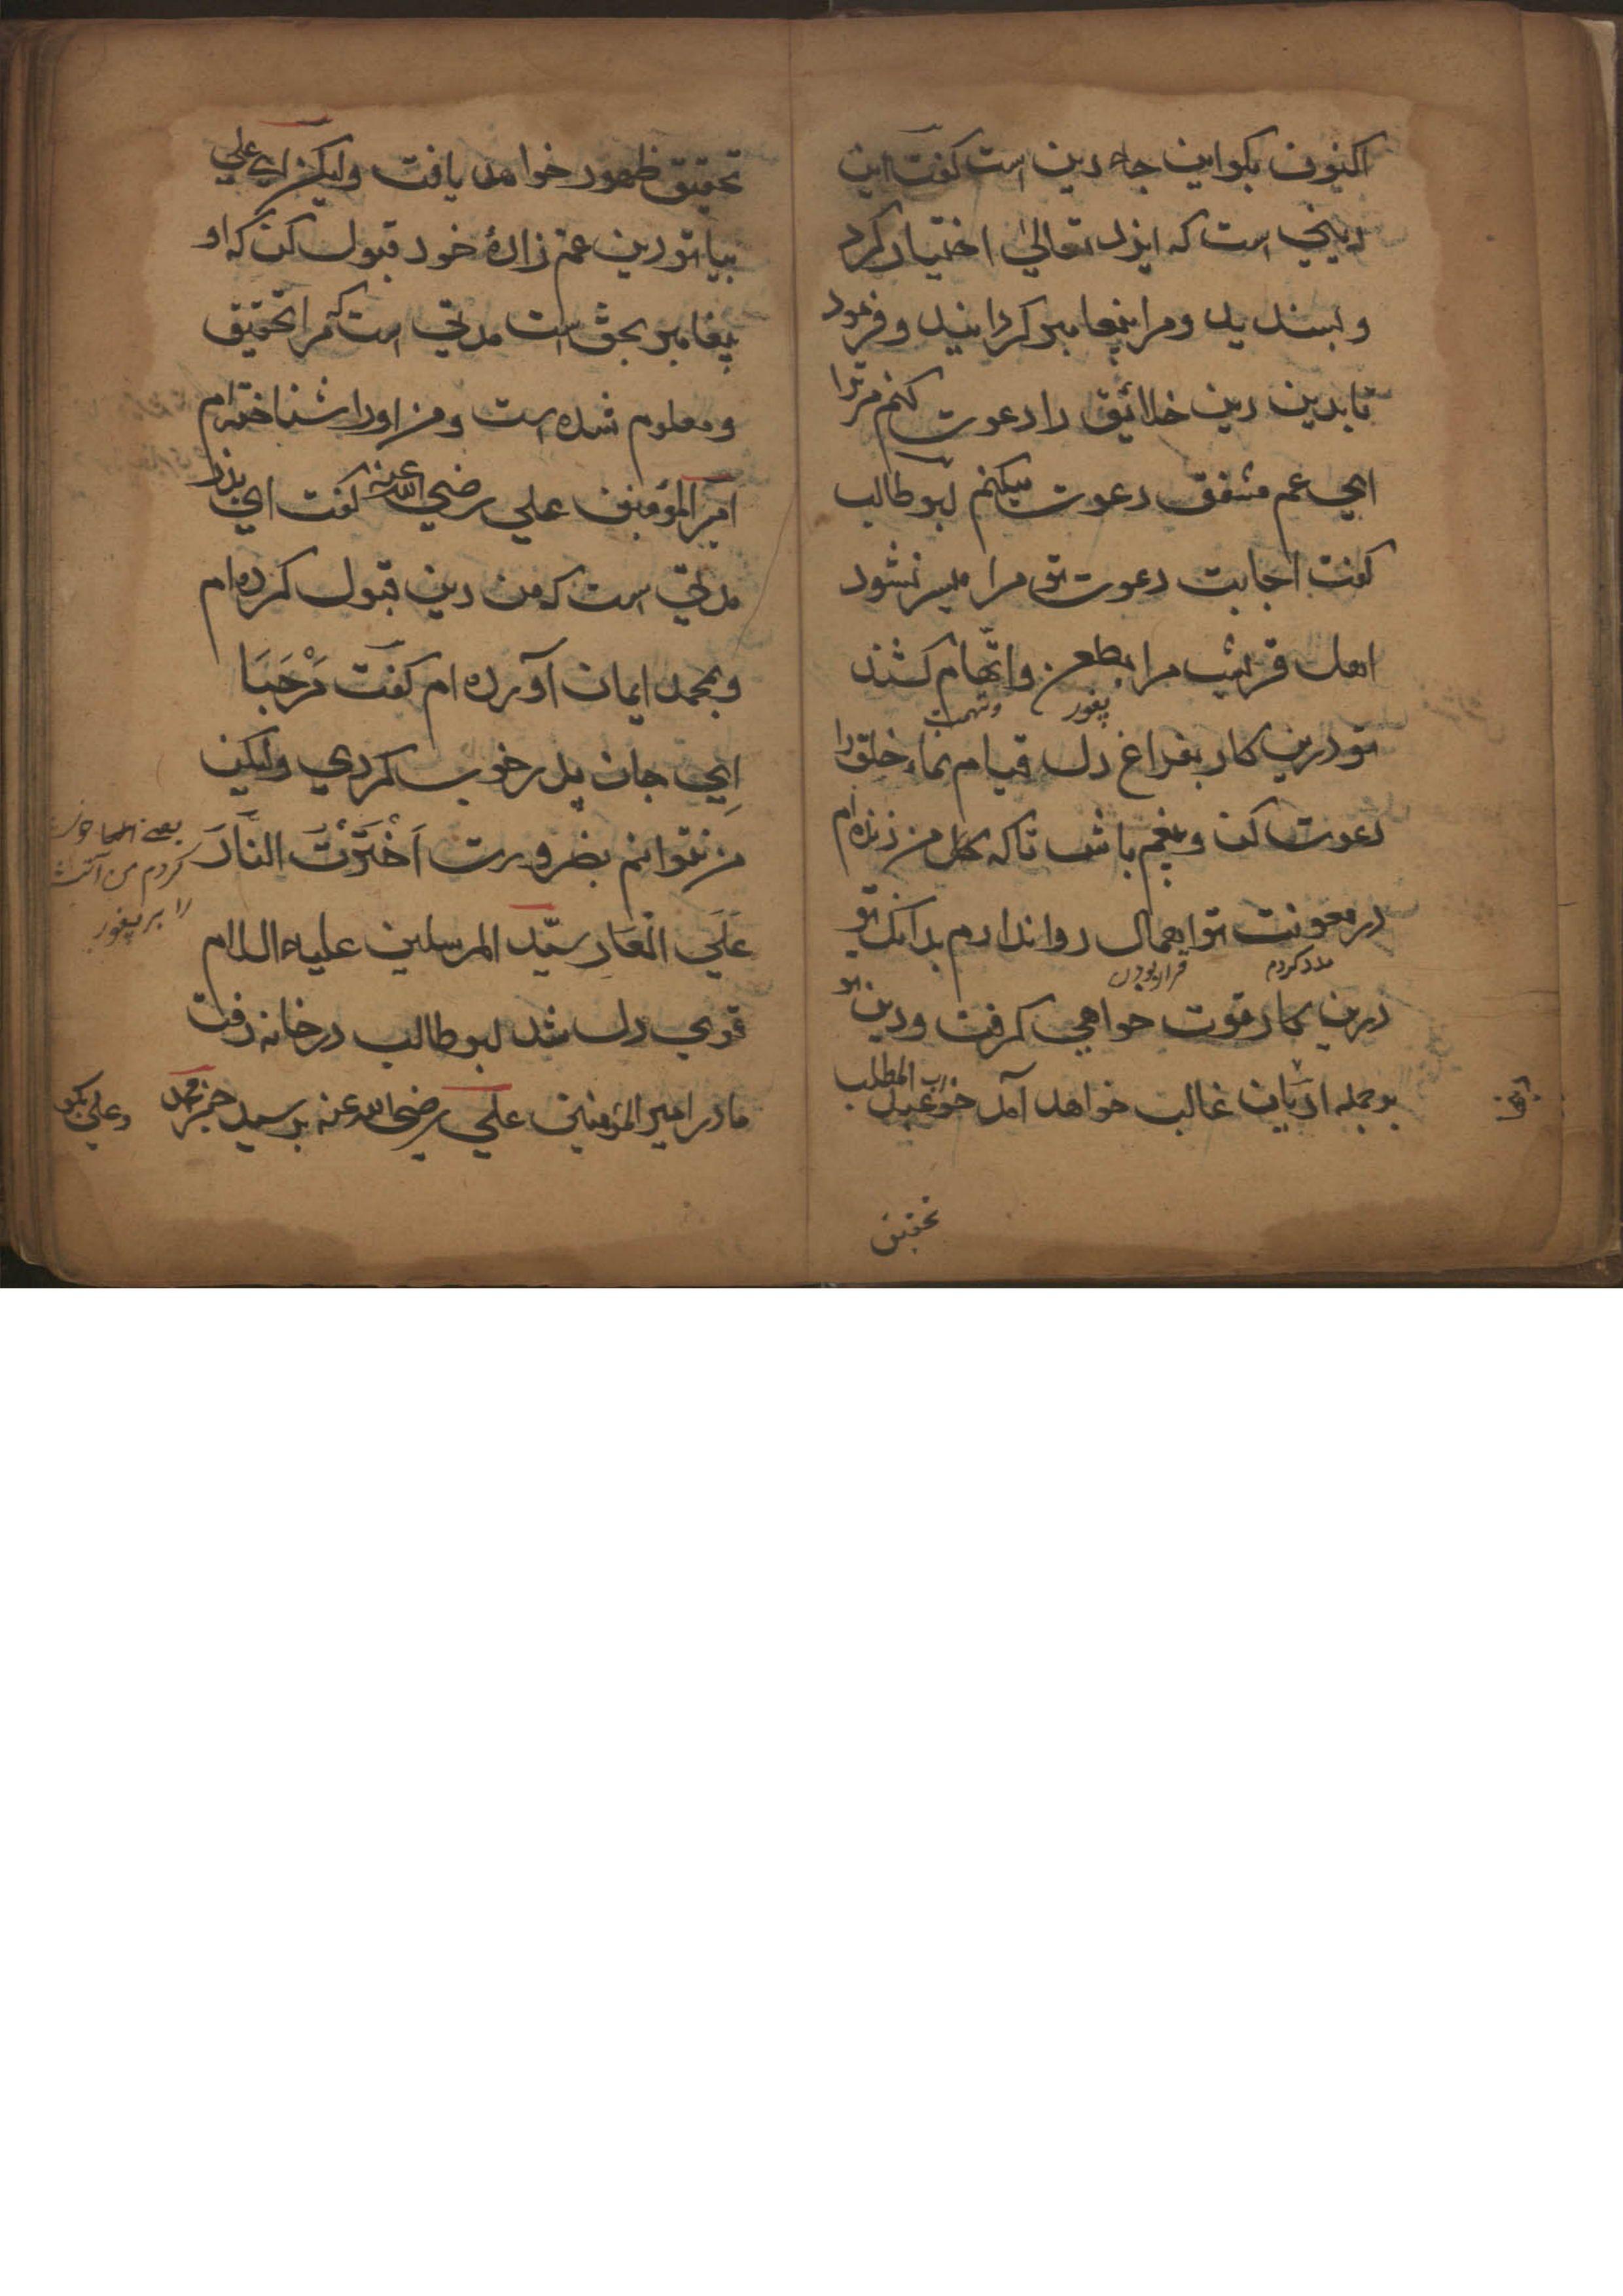 اکنون بکو این جاه دین است کفت این
دینی است که ایزد تعالی اختیار کرد
و بسندید و مرا پیغامبر کردانید و فرمود
تا بدین دین خلائق را دعوت کنم مر ترا
ای عم مشفق دعوت میکنم بوطالب
کفت اجابت دعوت تو مرا میسر نشود
اهل قریش مرا بطعن و اتّهام کشند
پیغور و تهمت
تو درین کار بفراغ دل قیام نماء خلق را
دعوت کن و بیغم باش تا که من زنده ام
در معونت تو اهمال روا ندارم بدانک تو
مدد کردم
درین کار قوت خواهی کرفت و دین تو
بر جمله ادیان غالب خواهد آمد خوب عبد المطلب
تحقیق
تحقیق ظهور خواهد یافت ولیکن ای علی
بیا تو دین عم زادهٔ خود قبول کن که او
پیغامبر بحق است مدتی است که مرا تحقیق
و معلوم شده است و من او را شناخته ام
امیر المؤمنین علی رضی الله عنه کفت ای پدر
مدتی است که من دین قبول کرده ام
و بمحمد ایمان آورده ام کفت مَرْحَبَا
اِی جان پدر خوب کردی ولیکن
من نتوانم بضرورت اَخْتَرْتُ النَّارَ
کردم من آتش
را بر پیغور
عَلَی الْعَارِ سیّد المرسلین علیه السلام
قوی دل شد بوطالب در خانه رفت
مادر امیر المؤمنین علی رضی الله عنه پرسید خبر محمد
وعلی بکو